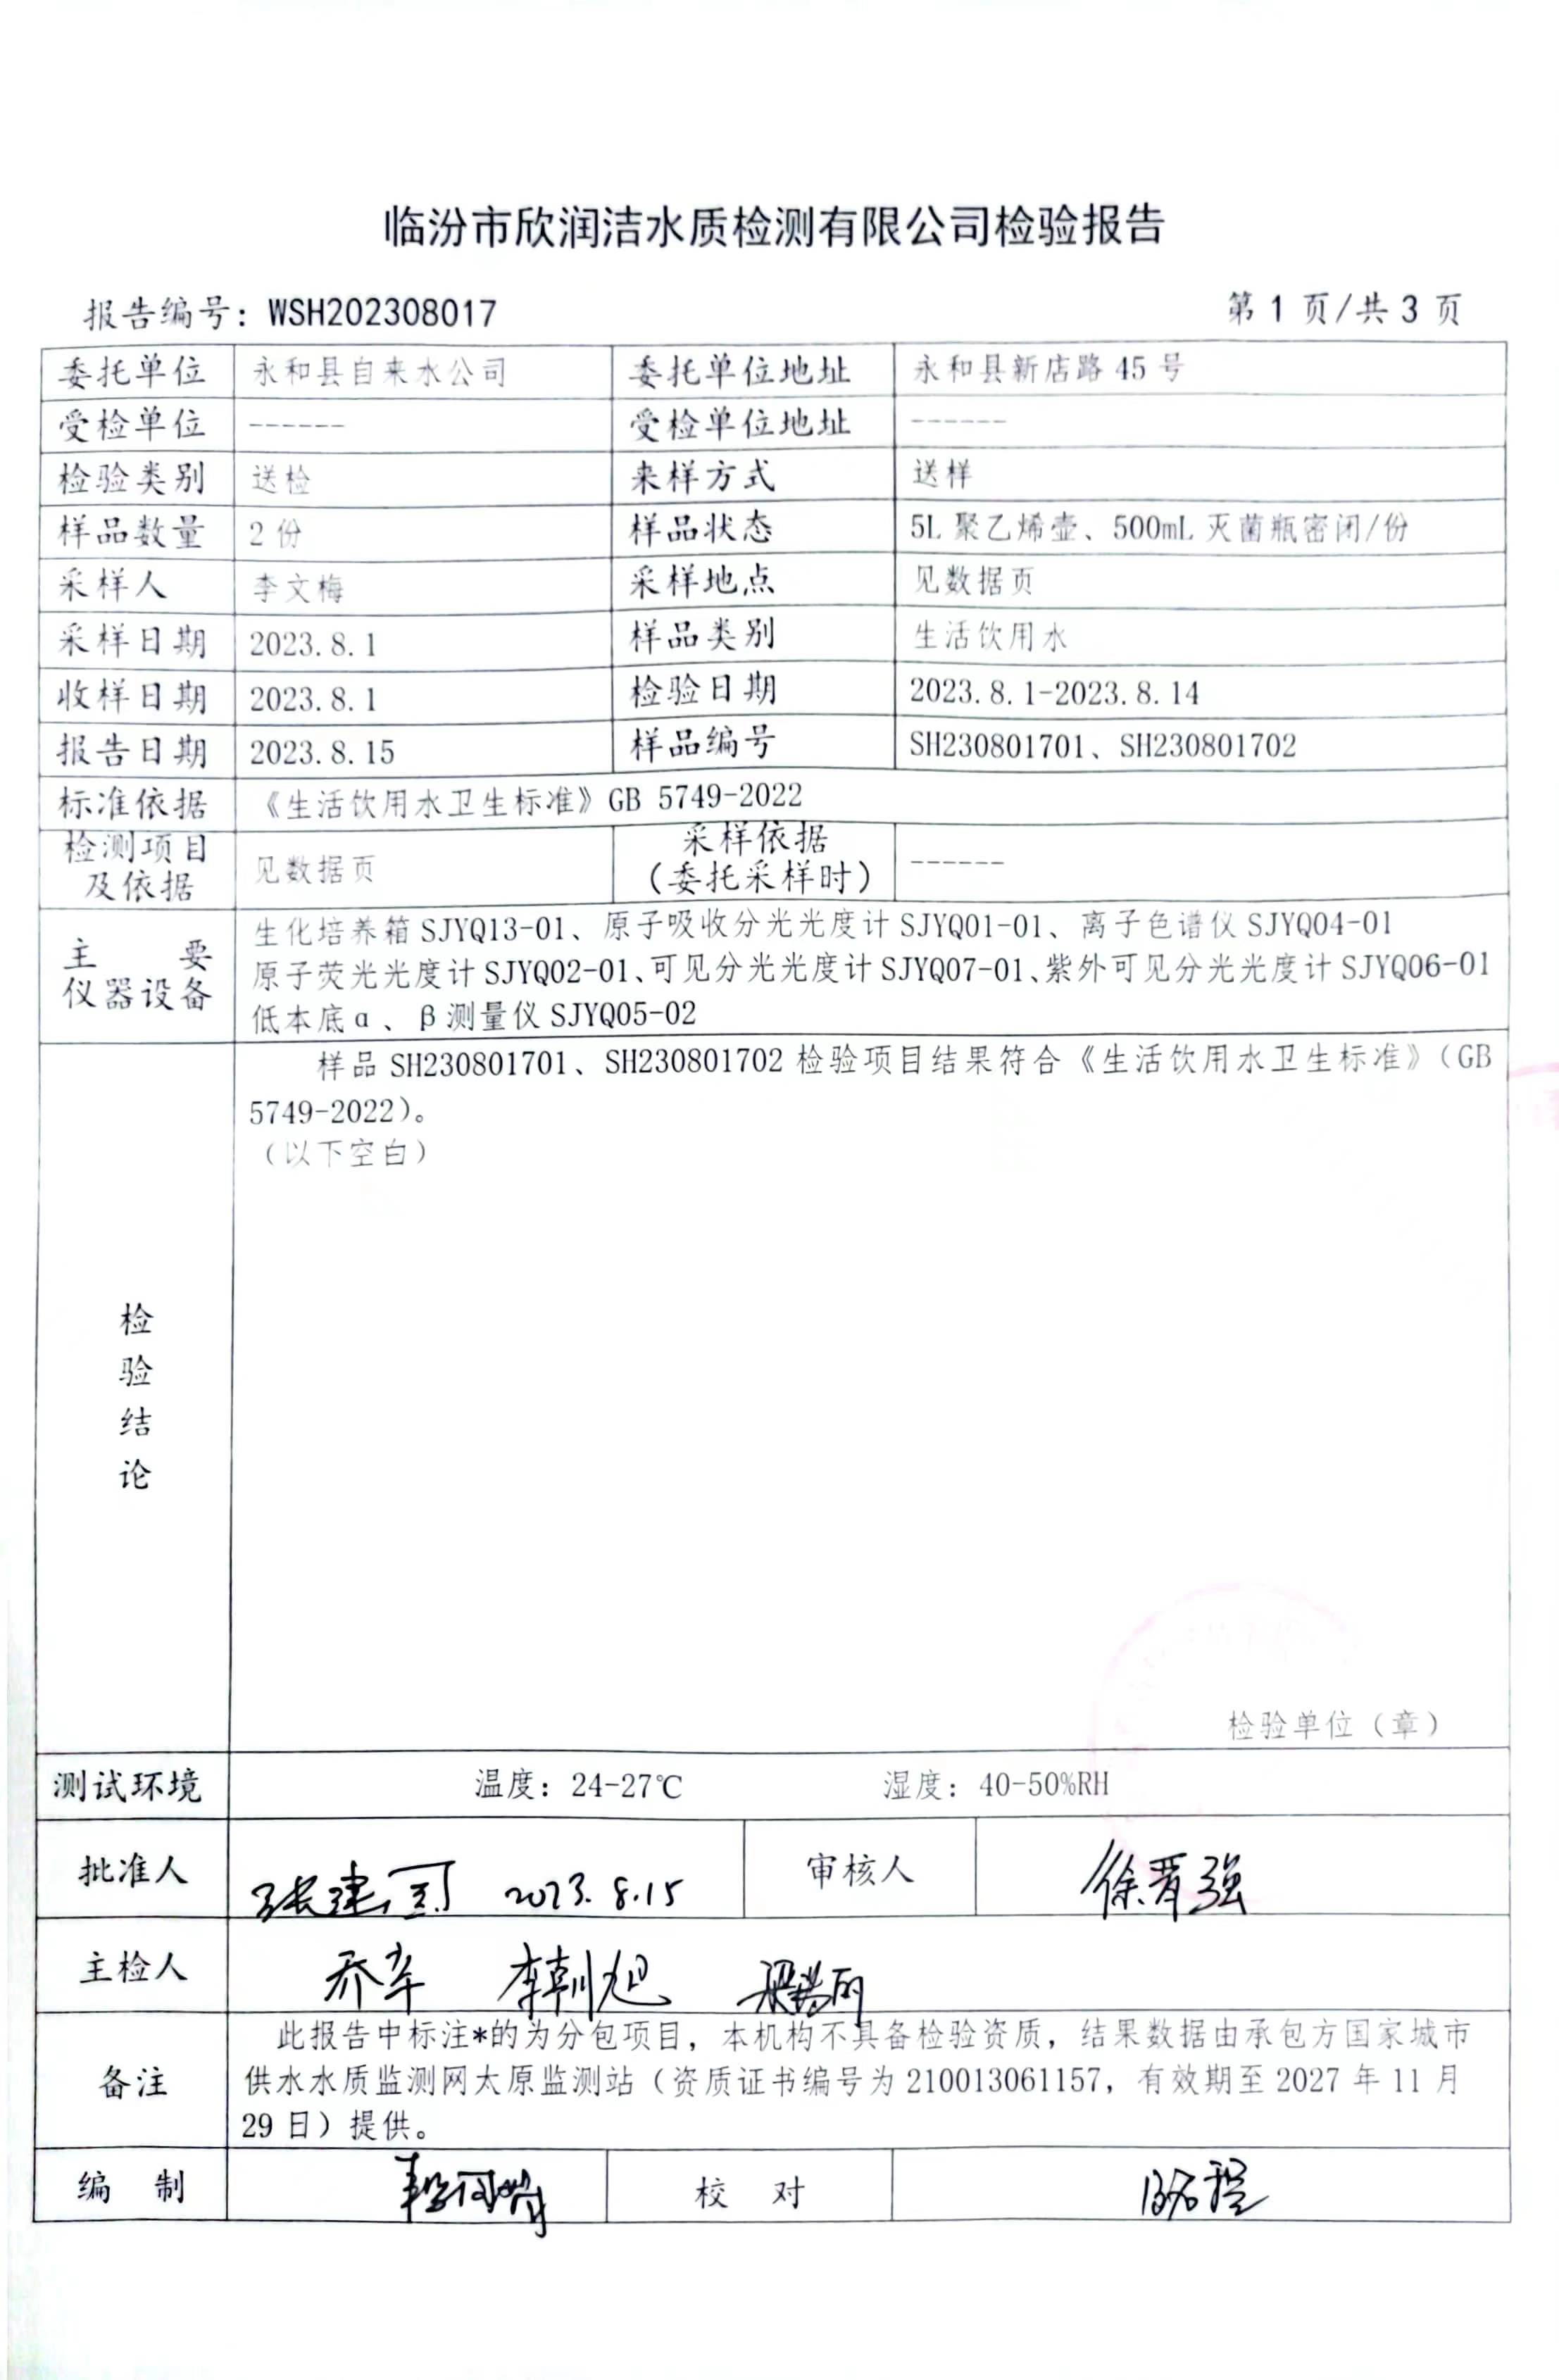 临汾市欣润洁水质检测有限公司检验报告
报告编号：WSH202308017 第 1 页/共 3 页
委托单位 永和县自来水公司 委托单位地址 永和县新店路 45 号
受检单位 ------ 受检单位地址 ------
检验类别 送检 来样方式 送样
样品数量 2 份 样品状态 5L 聚乙烯壶、500mL 灭菌瓶密闭/份
采样人 李文梅 采样地点 见数据页
采样日期 2023.8.1 样品类别 生活饮用水
收样日期 2023.8.1 检验日期 2023.8.1-2023.8.14
报告日期 2023.8.15 样品编号 SH230801701、SH230801702
标准依据 《生活饮用水卫生标准》GB 5749-2022
检测项目
及依据 见数据页 采样依据
（委托采样时） ------
主要
仪器设备
生化培养箱 SJYQ13-01、原子吸收分光光度计 SJYQ01-01、离子色谱仪 SJYQ04-01
原子荧光光度计 SJYQ02-01、可见分光光度计 SJYQ07-01、紫外可见分光光度计 SJYQ06-01
低本底α、β测量仪 SJYQ05-02
检
验
结
论
样品 SH230801701、SH230801702 检验项目结果符合《生活饮用水卫生标准》（GB
5749-2022）。
（以下空白）
检验单位（章）
测试环境 温度：24-27℃ 湿度：40-50%RH
批准人 2023.8.15 审核人 徐晋强
主检人 乔军 李朝旭
备注
此报告中标注*的为分包项目，本机构不具备检验资质，结果数据由承包方国家城市
供水水质监测网太原监测站（资质证书编号为 210013061157，有效期至 2027 年 11 月
29 日）提供。
编 制 校 对